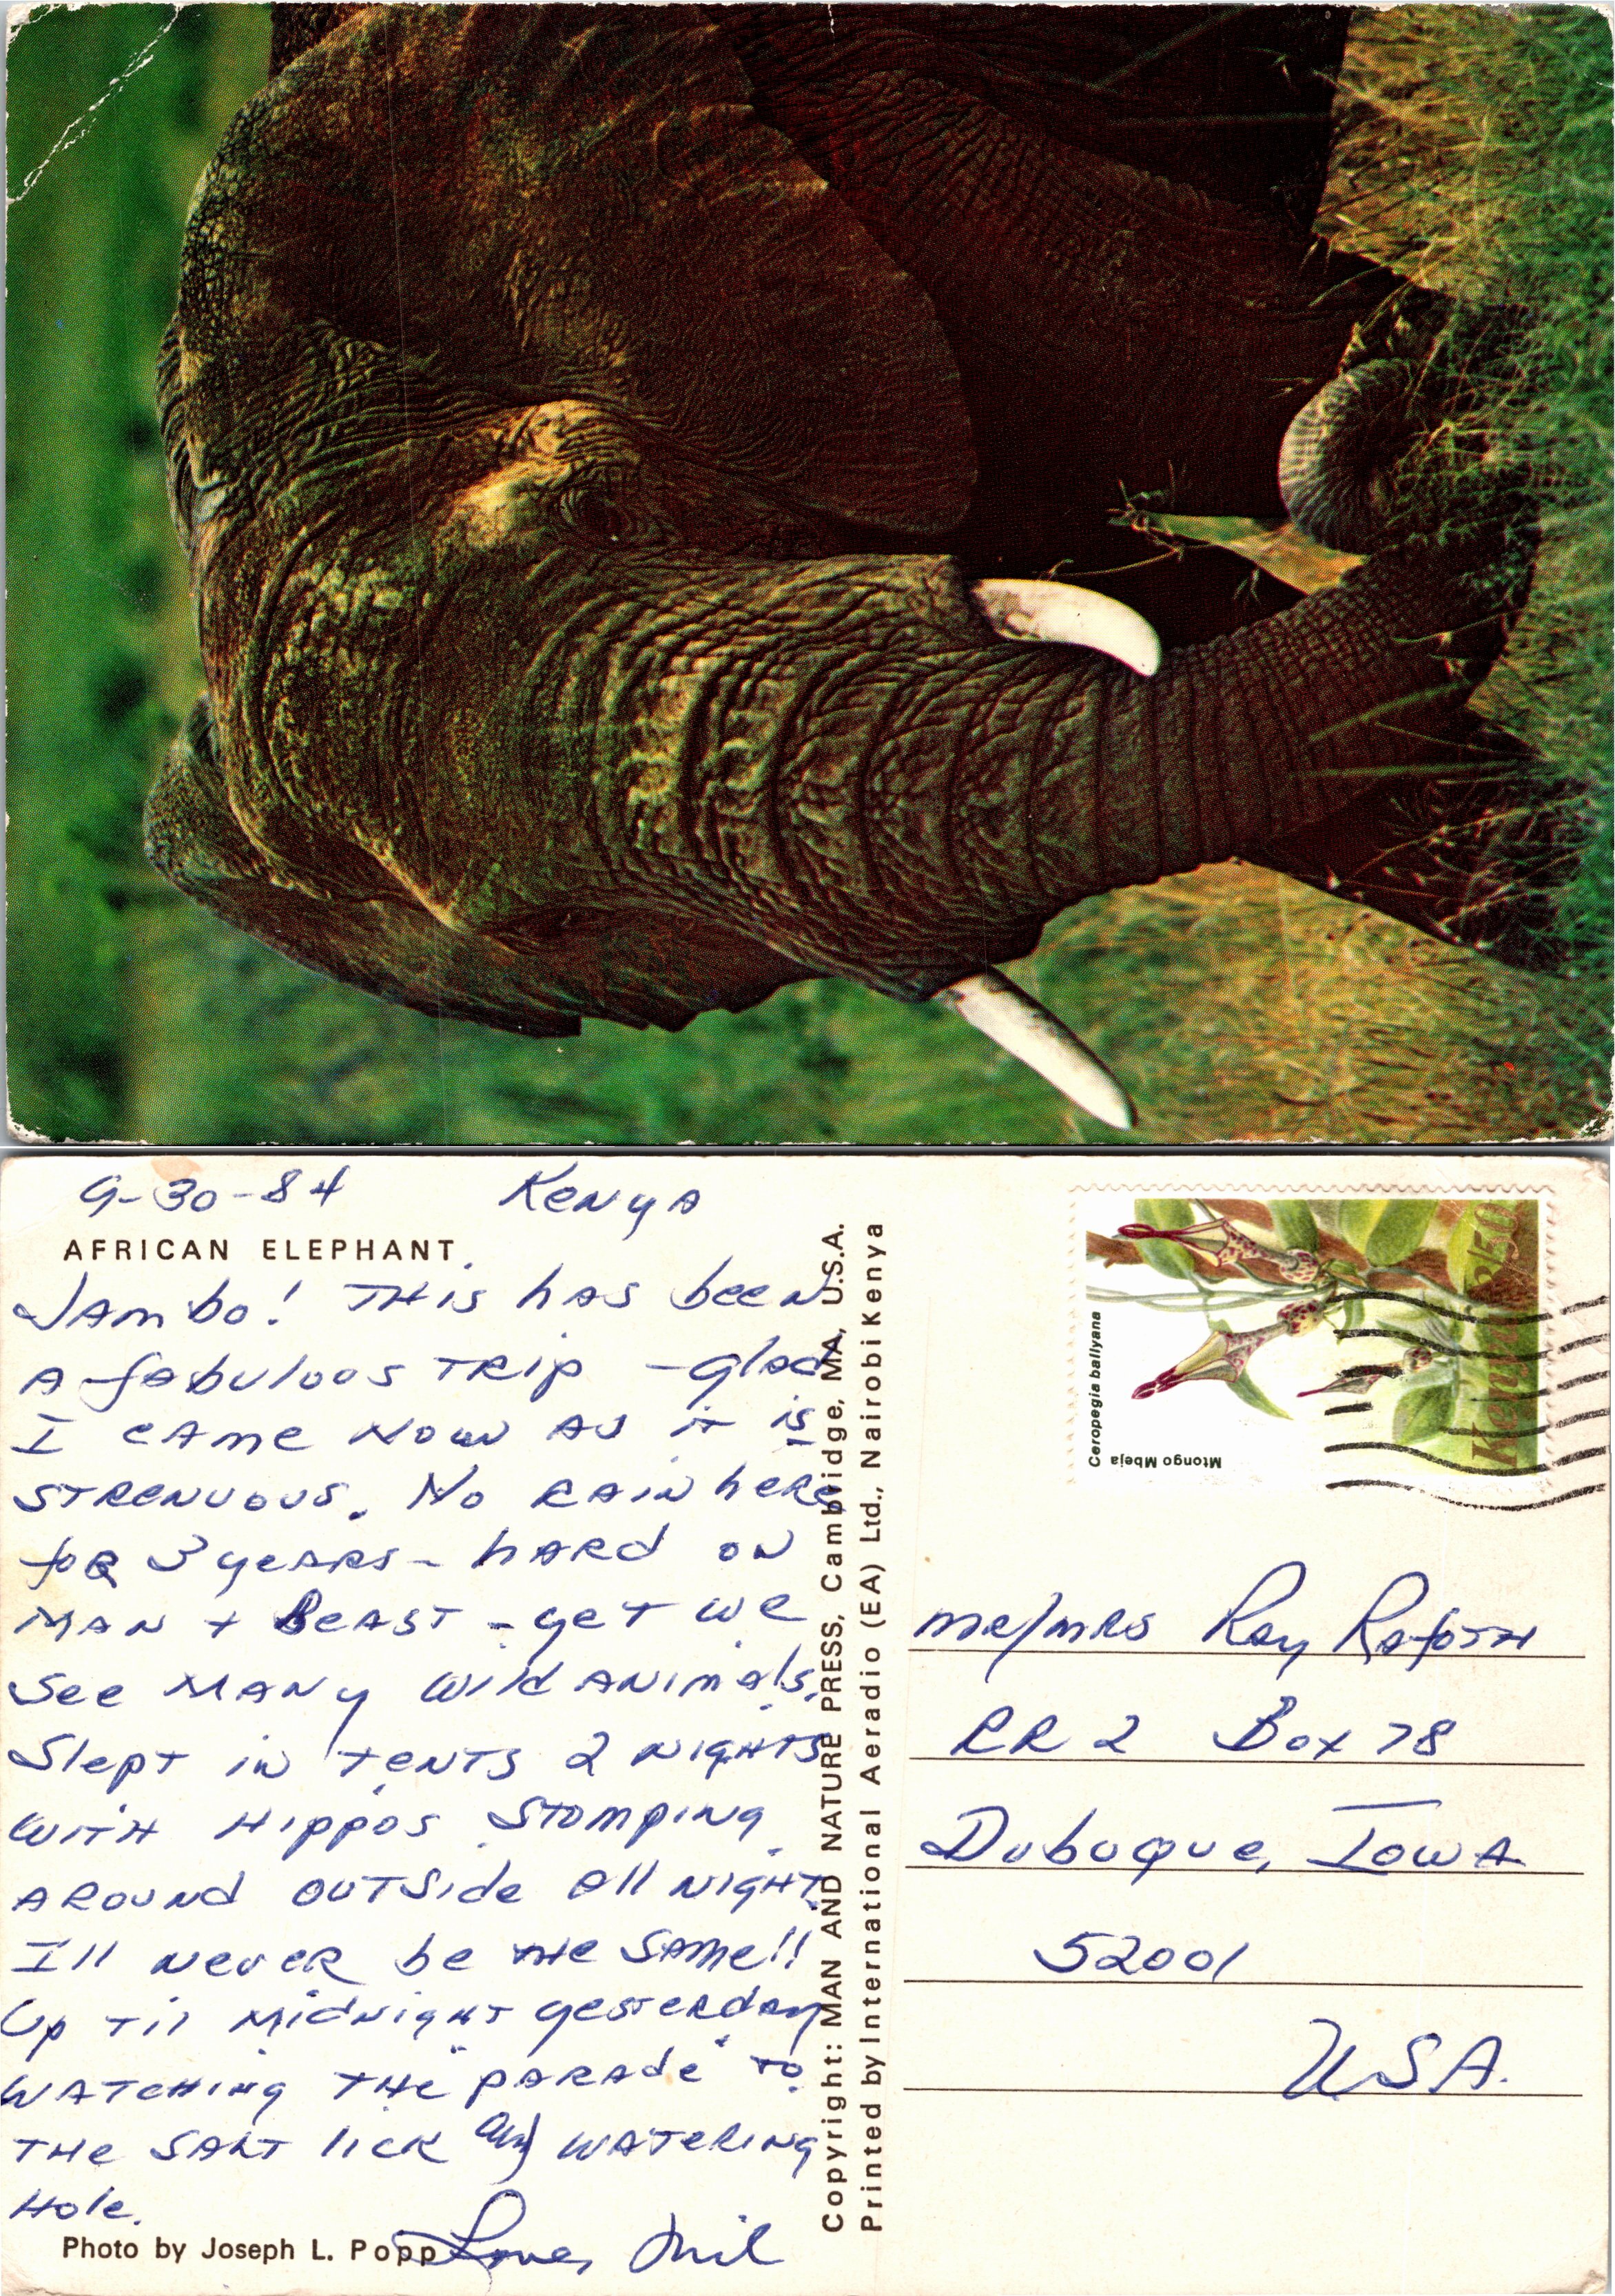 9-30-84 Kenya
AFRICAN ELEPHANT
Jambo! This has been
a fabulous trip - glad
I came now as it is
strenuous. No rain here
for 3 years - hard on
man + beast - yet we
see many wild animals.
Slept in tents 2 nights
with hippos stomping
around outside all night.
I'll never be the same!!
Up til midnight yesterday
watching the "parade" to
the salt lick and watering
hole.
Love,
Photo by Joseph L. Popp
Copyright: MAN AND NATURE PRESS, Cambridge, MA, U.S.A.
Printed by International Aeradio (EA) Ltd., Nairobi Kenya
Ceropegia ballyana
Mtongo Mbeja
Kenya 3/50
Mr/Mrs Ray
RR 2 Box 78
Dubuque, Iowa
52001
USA.